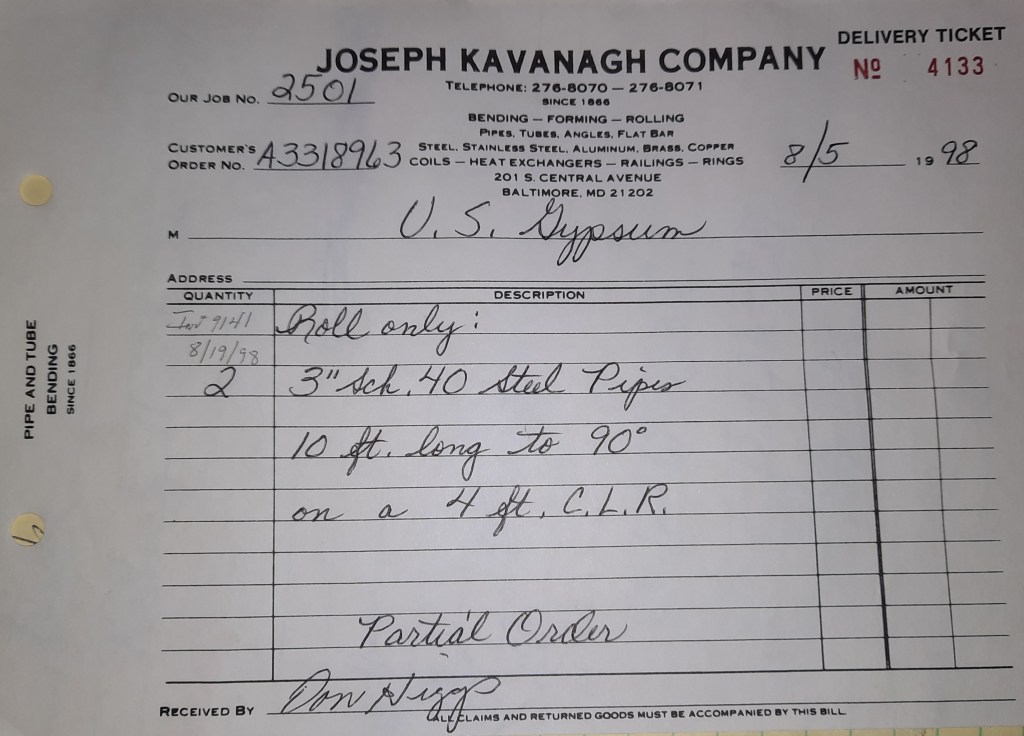 DELIVERY TICKET
JOSEPH KAVANAGH COMPANY
Nº 4133
OUR JOB NO. 2501
TELEPHONE: 276-8070 — 276-8071
SINCE 1866
BENDING — FORMING — ROLLING
PIPES, TUBES, ANGLES, FLAT BAR
CUSTOMER'S ORDER NO. A3318963
STEEL, STAINLESS STEEL, ALUMINUM, BRASS, COPPER
COILS — HEAT EXCHANGERS — RAILINGS — RINGS
8/5 1998
201 S. CENTRAL AVENUE
BALTIMORE, MD 21202
M U. S. Gypsum
ADDRESS
QUANTITY DESCRIPTION PRICE AMOUNT
Inv 9141 Roll only:
8/19/98
2 3" Sch. 40 Steel Pipes
10 ft. long to 90°
on a 4 ft. C.L.R.
Partial Order
RECEIVED BY Don Higgs
ALL CLAIMS AND RETURNED GOODS MUST BE ACCOMPANIED BY THIS BILL
PIPE AND TUBE
BENDING
SINCE 1866